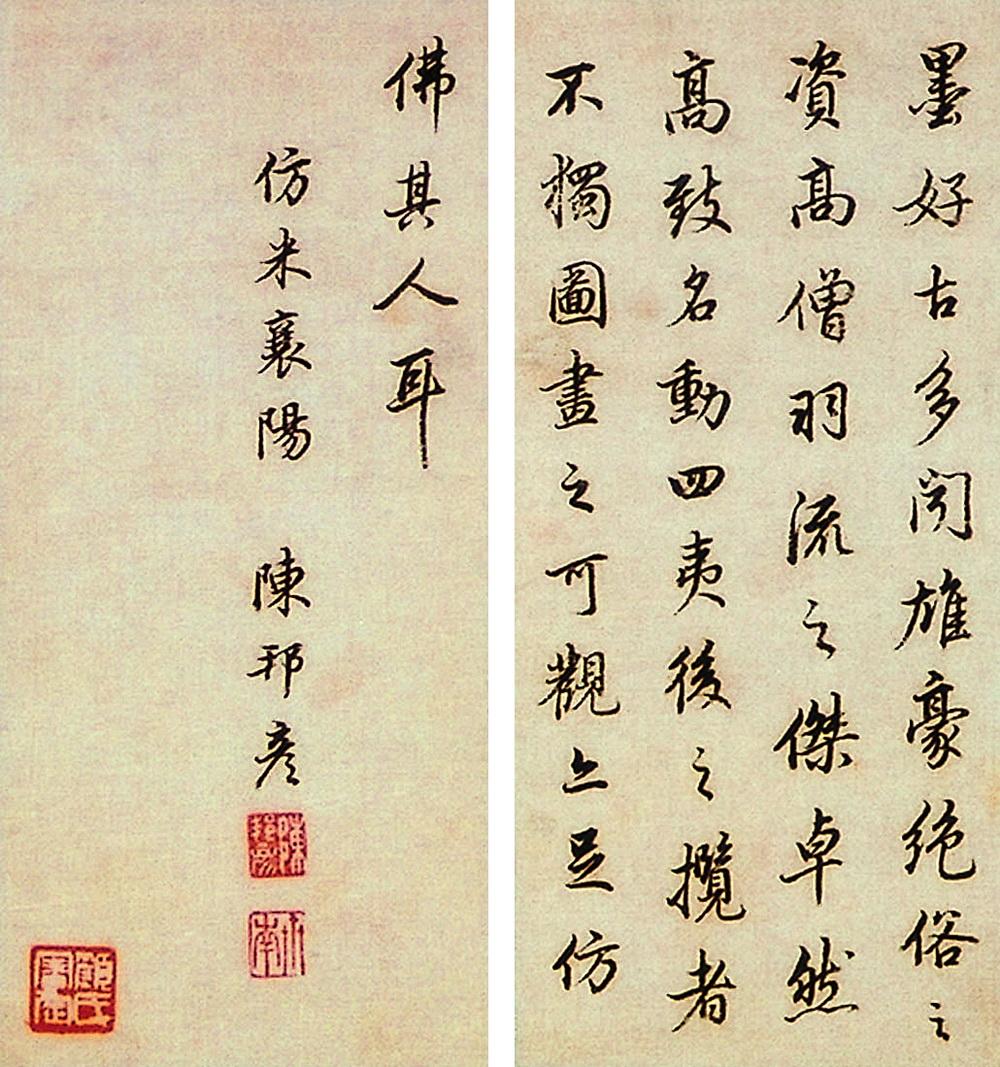 墨好古多闻雄豪绝俗之
資髙僧羽流之傑卓然
髙致名動四夷後之攬者
不獨圖畫之可觀亦足仿
佛其人耳
仿米襄陽 陳邦彦
陳邦彦